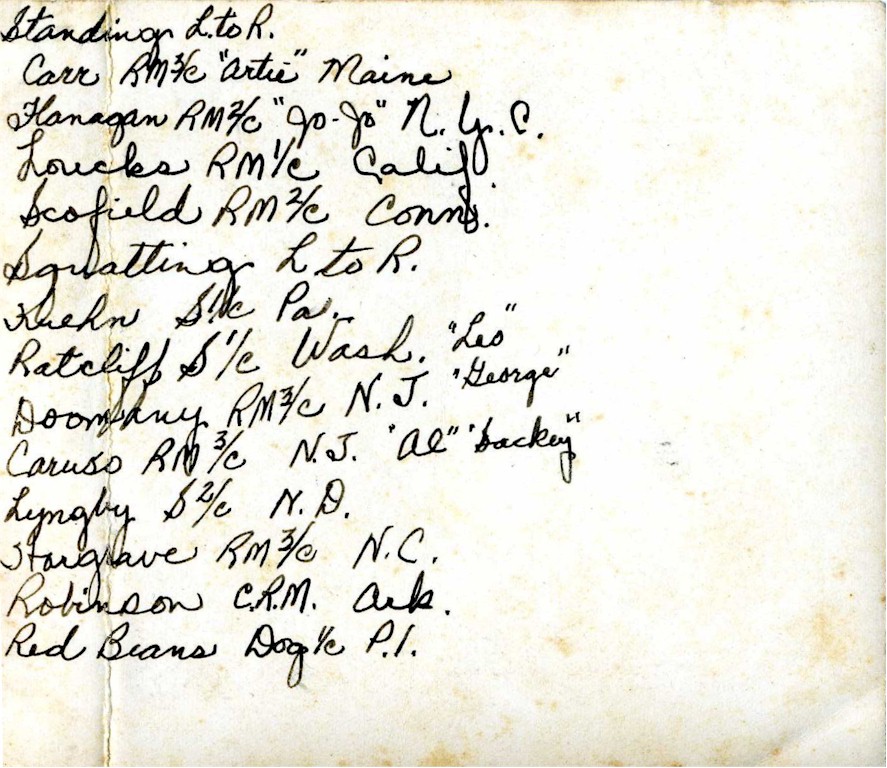 Standing L. to R.
Carr RM 3/c "Artie" Maine
Flanagan RM 2/c "Jo-Jo" N.Y.C.
Loucks RM 1/c Calif
Scofield RM 2/c Conn.
Squatting L to R.
Kuehn S 1/c Pa.
Ratcliff S 1/c Wash. "Leo"
RM 3/c N.J. "George"
Caruso RM 3/c N.J. "Al" "Sackey"
Lyngby S 2/c N.D.
Hargrave RM 3/c N.C.
Robinson C.R.M. Ark.
Red Beans Dog 1/c P.I.